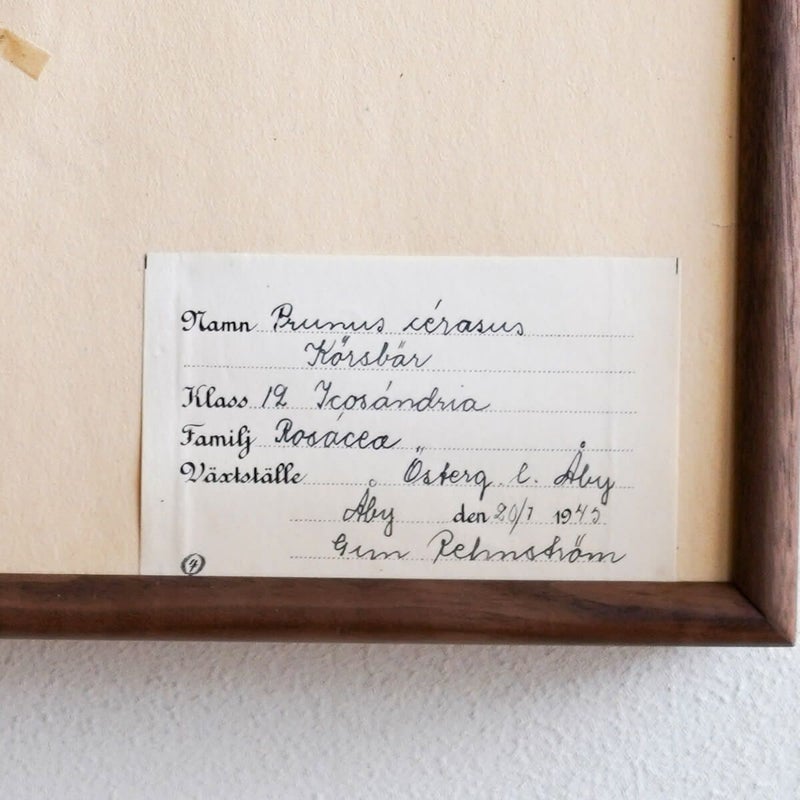 Namn Prunus cérasus
Körsbär
Klass 12 Icosándria
Familj Rosácea
Växtställe Österg. l. Åby
Åby den 20/7 1945
Gun
4